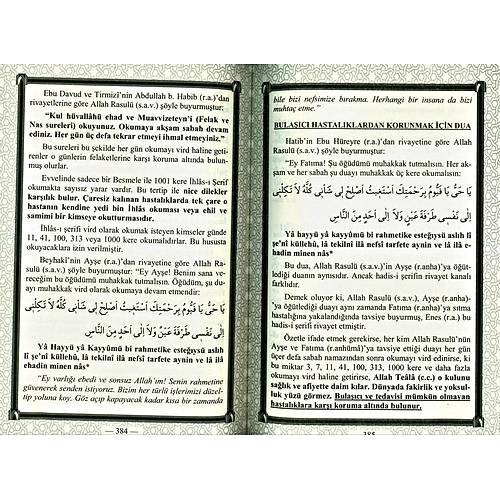 Ebu Davud ve Tirmizî'nin Abdullah b. Habib (r.a.)'dan
rivayetlerine göre Allah Rasulü (s.a.v.) şöyle buyurmuştur:
"Kul hüvallâhü ehad ve Muavvizeteyn'i (Felak ve
Nas sureleri) okuyunuz. Okumaya akşam sabah devam
ediniz. Her gün üç defa tekrar etmeyi ihmal etmeyiniz."
Bu sureleri bu şekilde her gün okumayı vird haline geti-
renler o günlerin felaketlerine karşı koruma altında bulun-
muş olurlar.
Evvelinde sadece bir Besmele ile 1001 kere İhlâs-ı Şerif
okumakta sayısız yarar vardır. Bu tertip ile nice dilekler
karşılık bulur. Çaresiz kalınan hastalıklarda tek çare o
hastanın kendine yedi bin İhlâs okuması veya ehil ve
samimi bir kimseye okutturmasıdır.
İhlâs-ı şerifi vird olarak okumak isteyen kimseler günde
11, 41, 100, 313 veya 1000 kere okumalıdırlar. Bu hususta
okuyacaklara izin verilmiştir.
Beyhakî'nin Ayşe (r.a.)'dan rivayetine göre Allah Ra-
sulü (s.a.v.) şöyle buyurmuştur: "Ey Ayşe! Benim sana ve-
receğim bu öğüdümü muhakkak tutmalısın. Öğüdüm, şu du-
ayı muhakkak vird olarak okumaya devam etmendir:
يَا حَىُّ يَا قَيُّومُ بِرَحْمَتِكَ اَسْتَغِيثُ اَصْلِحْ لِى شَاْنِى كُلَّهُ لَا تَكِلْنِى
اِلَى نَفْسِى طَرْفَةَ عَيْنٍ وَلَا اِلَى اَحَدٍ مِنَ النَّاسِ
Yâ Hayyü yâ Kayyûmü bi rahmetike esteğysü aslıh
lî şe'nî küllehu, lâ tekilnî ilâ nefsî tarfete aynin ve lâ ilâ
ehadin minen nâs"
"Ey varlığı ebedi ve sonsuz Allah'ım! Senin rahmetine
güvenerek senden istiyoruz. Bizim her türlü işlerimizi düzel-
tip yoluna koy. Göz açıp kapayacak kadar kısa bir zamanda
— 384 —
bile bizi nefsimize bırakma. Herhangi bir insana da bizi
muhtaç etme."
BULAŞICI HASTALIKLARDAN KORUNMAK İÇİN DUA
Hatib'in Ebu Hüreyre (r.a.)'dan rivayetine göre Allah
Rasulü (s.a.v.) şöyle buyurmuştur:
"Ey Fatıma! Şu öğüdümü muhakkak tutmalısın. Her ak-
şam ve her sabah şu duayı muhakkak üç kere okumalısın:
يَا حَىُّ يَا قَيُّومُ بِرَحْمَتِكَ اَسْتَغِيثُ اَصْلِحْ لِى شَاْنِى كُلَّهُ لَا تَكِلْنِى
اِلَى نَفْسِى طَرْفَةَ عَيْنٍ وَلَا اِلَى اَحَدٍ مِنَ النَّاسِ
Yâ hayyü yâ kayyûmü bi rahmetike esteğysü aslıh l
î şe'nî küllehû, lâ tekilnî ilâ nefsî tarfete aynin ve lâ ilâ e-
hadin minen nâs"
Bu dua, Allah Rasulü (s.a.v.)'in Ayşe (r.anha)'ya öğüt-
lediği duanın aynısıdır. Ancak hadis-i şerifin rivayet kanalı
farklıdır.
Demek oluyor ki, Allah Rasulü (s.a.v.), Ayşe (r.anha)'ya
öğütlediği duayı aynı zamanda Fatıma (r.anha)'ya sıtma
hastalığına yakalandığında tavsiye buyurmuş, Enes (r.a.) bu
hadis-i şerifi rivayet etmiştir.
Özetle ifade etmek gerekirse, her kim Allah Rasulü'nün
Ayşe ve Fatıma (r.anhümâ)'ya tavsiye ettiği duayı her gün
üçer defa sabah namazından sonra okumayı vird edinirse, ki
bu miktar 3, 7, 11, 41, 100, 313, 1000 kere ve daha fazla
okumayı vird haline getirirse, Allah Teâlâ (c.c.) o kulunu
sağlık ve afiyette daim kılar. Dünyada fakirlik ve yoksul-
luk yüzü görmez. Bulaşıcı ve tedavisi mümkün olmayan
hastalıklara karşı koruma altında bulunur.
385